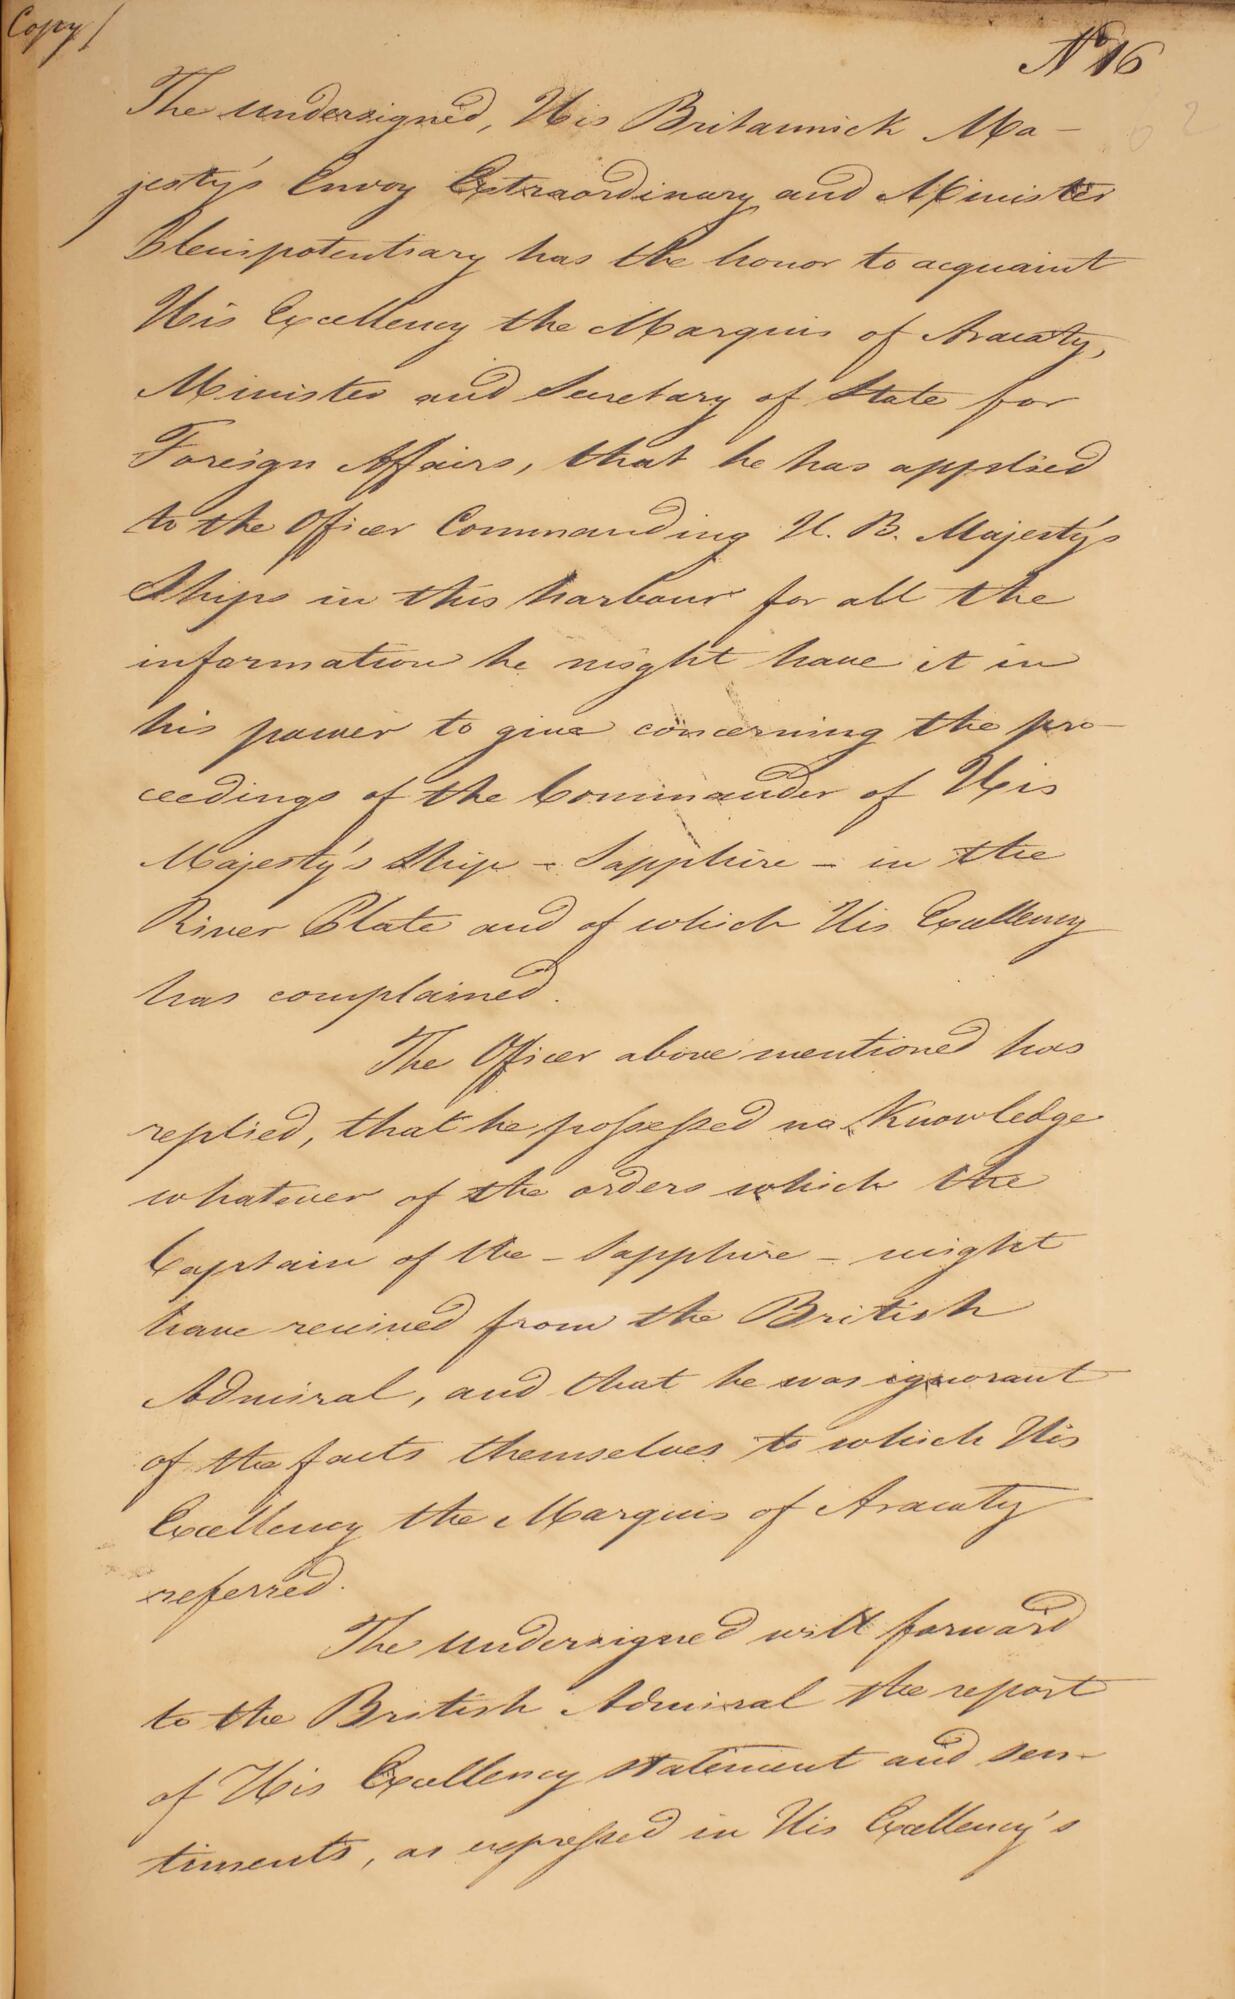 Copy/
No 16
The undersigned, His Britannick Ma-
jesty's Envoy Extraordinary and Minister
Plenipotentiary has the honor to acquaint
His Excellency the Marquis of Aracaty,
Minister and Secretary of State for
Foreign Affairs, that he has applied
to the Officer Commanding H. B. Majesty's
Ships in this harbour for all the
information he might have it in
his power to give concerning the pro-
ceedings of the Commander of His
Majesty's Ship - Sapphire - in the
River Plate and of which His Excellency
has complained.
The Officer above mentioned has
replied, that he possessed no Knowledge
whatever of the orders which the
Captain of the - Sapphire - might
have received from the British
Admiral, and that he was ignorant
of the facts themselves to which His
Excellency the Marquis of Aracaty
referred.
The undersigned will forward
to the British Admiral the report
of His Excellency statement and sen-
timents, as expressed in His Excellency's